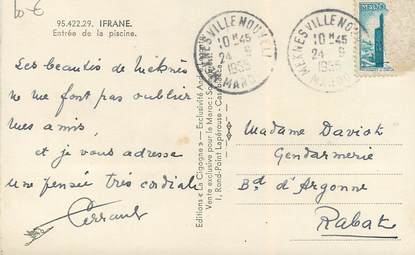 10 €
95.422.29. IFRANE.
Entrée de la piscine.
Les beautés de Meknès
ne me font pas oublier
mes amis,
et je vous adresse
une pensée très cordiale
Perrault
Editions « La Cigogne » — Exclusivité
Vente exclusive pour le Maroc:
1, Rond-Point Lapérouse -
MEKNES VILLE NOUVELLE
10 H 45
24 - 9
1955
MAROC
MEKNES VILLE NOUVELLE
10 H 45
24 9
1955
MAROC
MAROC
Madame Daviot
Gendarmerie
Bd d'Argonne
Rabat